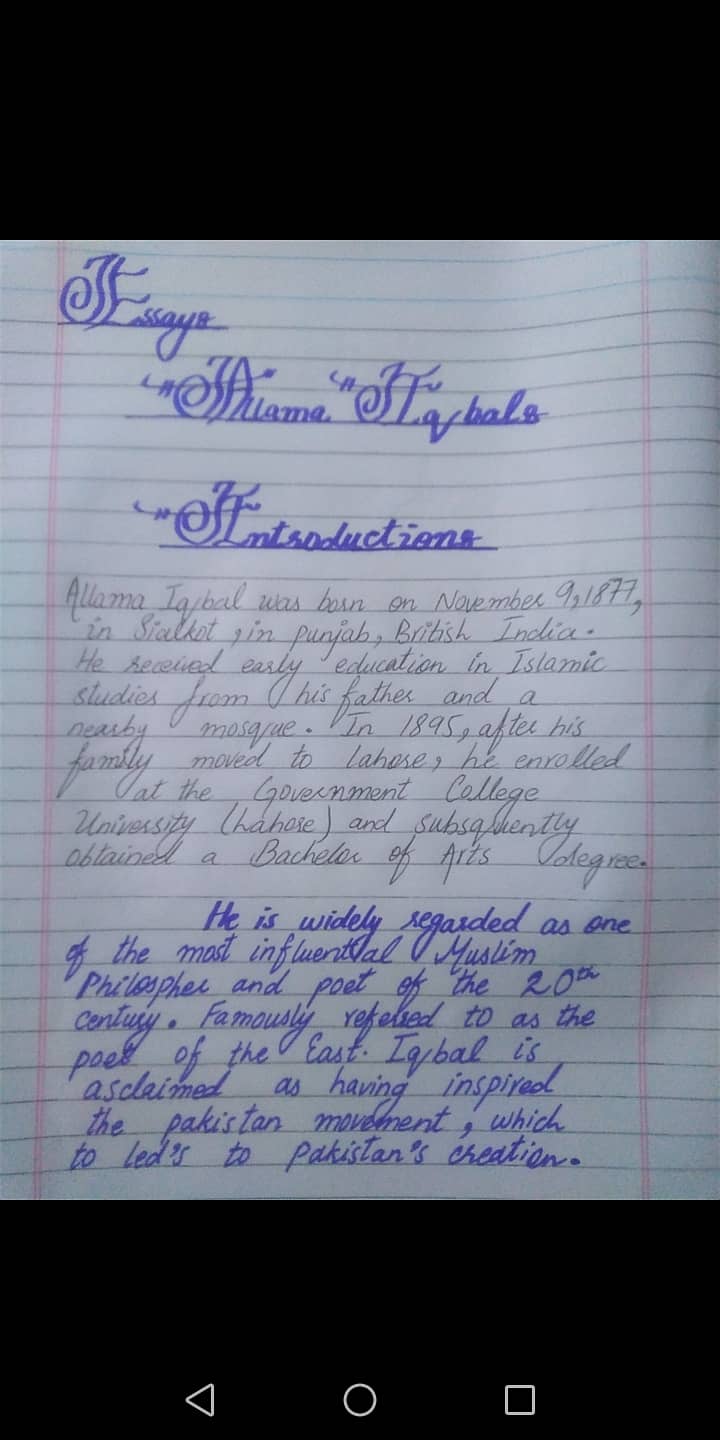 Essays
"Allama "Iqbals
"Introductions
Allama Iqbal was born on November 9,1877,
in Sialkot, in punjab, British India.
He received early education in Islamic
studies from his father and a
nearby mosque. In 1895, after his
family moved to lahore, he enrolled
at the Government College
University (Lahore) and subsquently
obtained a Bachelor of Arts degree.
He is widely regarded as one
of the most influential Muslim
Philospher and poet of the 20th
century. Famously refered to as the
poet of the East. Iqbal is
asclaimed as having inspired
the pakistan movement, which
to led's to Pakistan's creation.